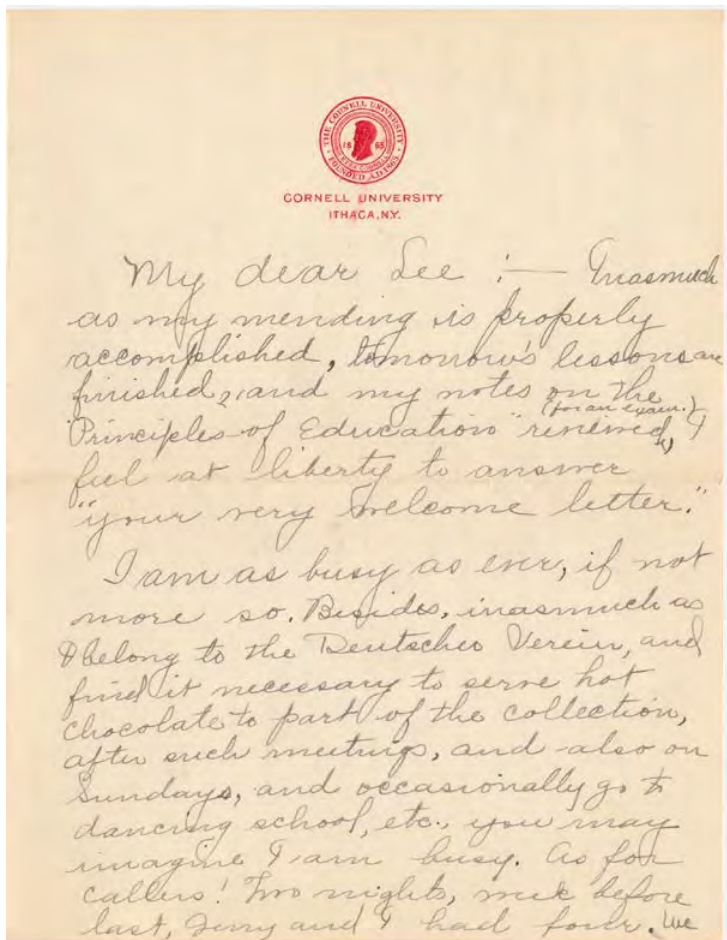 THE CORNELL UNIVERSITY
FOUNDED A.D. 1865
1865
EZRA CORNELL
CORNELL UNIVERSITY
ITHACA, N.Y.
My dear Lee :— Inasmuch
as my mending is properly
accomplished, tomorrow's lessons are
finished, and my notes on the
(for an exam.)
"Principles of Education" reviewed, I
feel at liberty to answer
"your very welcome letter."
I am as busy as ever, if not
more so. Besides, inasmuch as
I belong to the Deutscher Verein, and
find it necessary to serve hot
chocolate to part of the collection,
after such meetings, and also on
Sundays, and occasionally go to
dancing school, etc., you may
imagine I am busy. As for
callers! Two nights, week before
last, and I had four. We